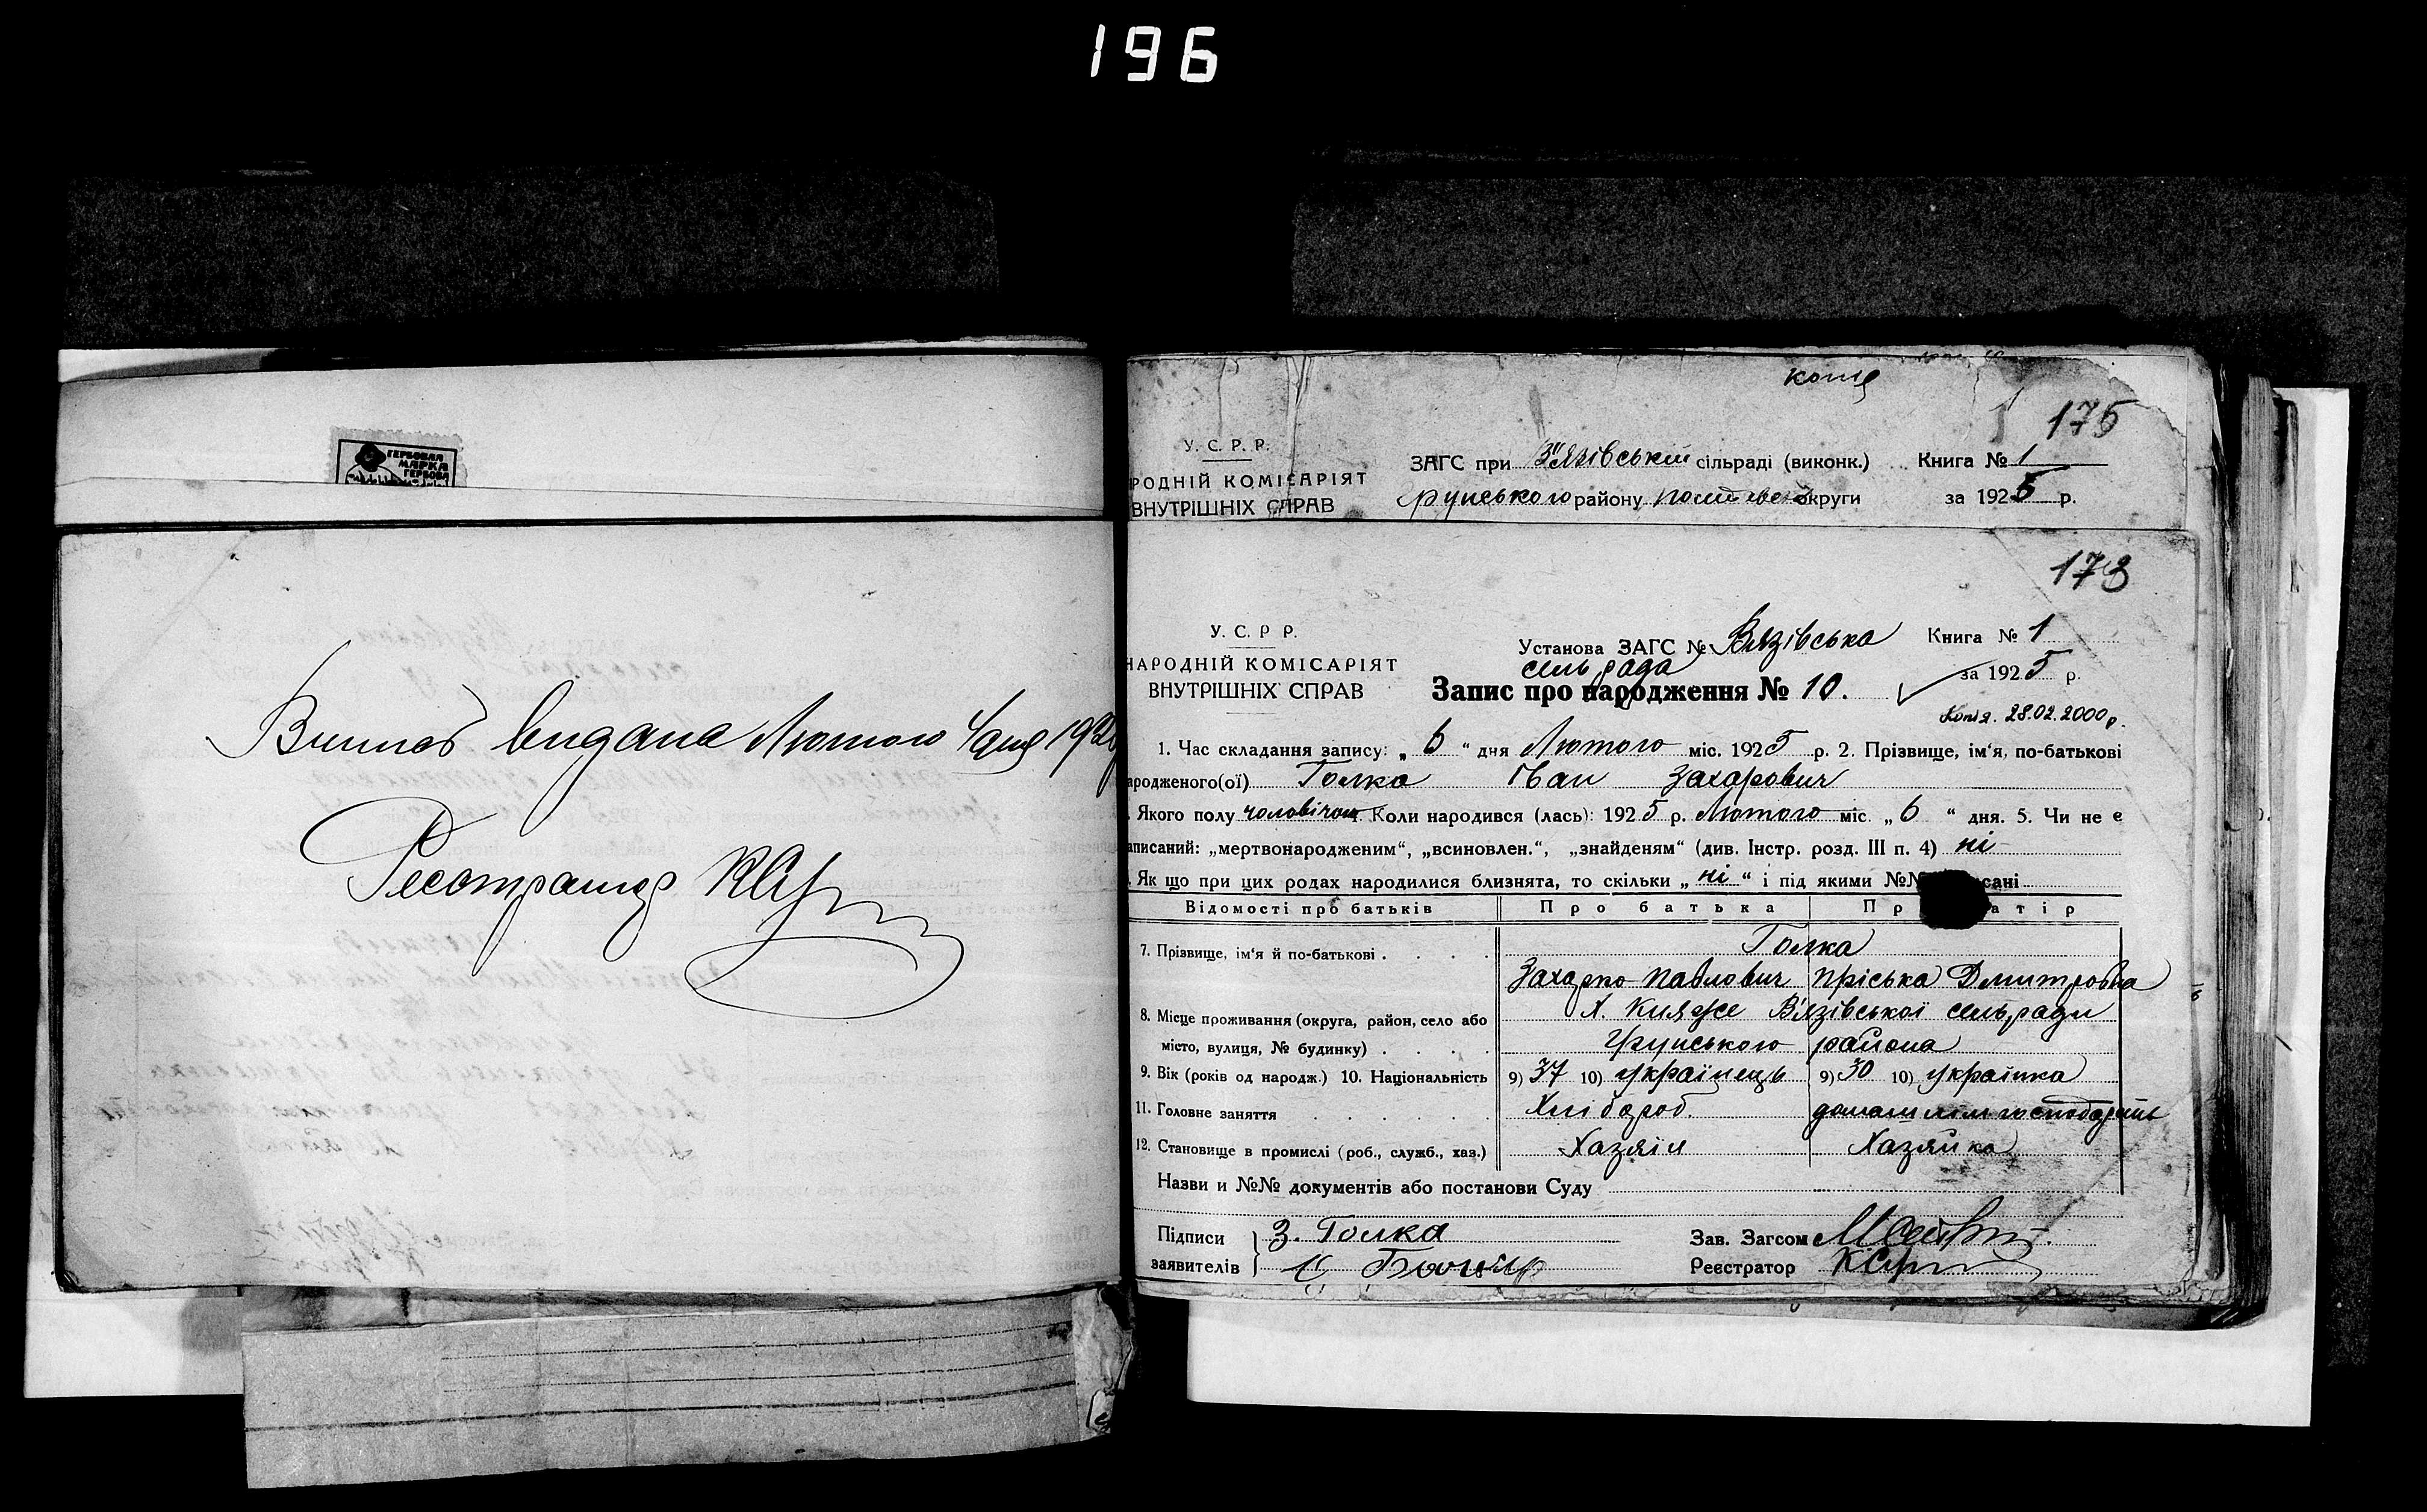 196
ГЕРБОВАЯ
МАРКА
ГЕРБОВА
Випис видана Лютого 4 дня 192
Реєстратор
175
У. С. Р. Р.
РОДНІЙ КОМІСАРІЯТ
ВНУТРІШНІХ СПРАВ
ЗАГС при В'язівській сільраді (виконк.) Книга № 1
Грунського району Полтавськ округи за 1925 р.
173
У. С. Р Р.
НАРОДНІЙ КОМІСАРІЯТ
ВНУТРІШНІХ СПРАВ
Установа ЗАГС № Вязівська Книга № 1
сельрада за 1925 р.
Запис про народження № 10.
Копія. 28.02.2000 р.
1. Час складання запису: „ 6 “ дня Лютого міс. 1925 р. 2. Прізвище, ім'я, по-батькові
ародженого(ої) Голка Іван Захарович
Якого полу чоловічої 4. Коли народився (лась): 1925 р. Лютого міс. „ 6 “ дня. 5. Чи не є
аписаний: „мертвонародженим“, „всиновлен.“, „знайденям“ (див. Інстр. розд. III п. 4) ні
Як що при цих родах народилися близнята, то скільки „ ні “ і під якими №№ сані
Відомості про батьків Про батька Пр атір
7. Прізвище, ім'я й по-батькові Голка
Захарко Павлович Пріська Дмитровна
8. Місце проживання (округа, район, село або Х. Княже В'язівської сельради
місто, вулиця, № будинку) Грунського района
9. Вік (років од народж.) 10. Національність 9) 37 10) українець 9) 30 10) українка
11. Головне заняття Хлібороб. домашнім господарств
12. Становище в промислі (роб., служб., хаз.) Хазяїн Хазяйка
Назви и №№ документів або постанови Суду
Підписи З. Голка Зав. Загсом
заявителів Реєстратор